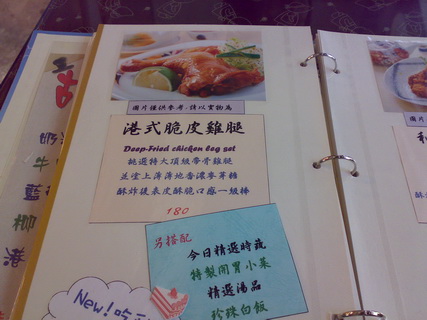 圖片僅供參考,請以實物為
港式脆皮雞腿
Deep-Fried chicken leg set
挑選特大頂級帶骨雞腿
並塗上薄薄地香濃麥芽糖
酥炸後表皮酥脆口感一級棒
180
另搭配
今日精選時蔬
特製開胃小菜
精選湯品
珍珠白飯
New!
牛
藍
椰
港
圖片